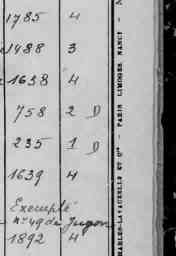 1785 4
1488 3
1638 4
758 2 D
235 1 D
1639 4
Exempté
n° 49 de Jugon
1892 4
CHARLES-LAVAUZELLE ET Cie — PARIS LIMOGES, NANCY